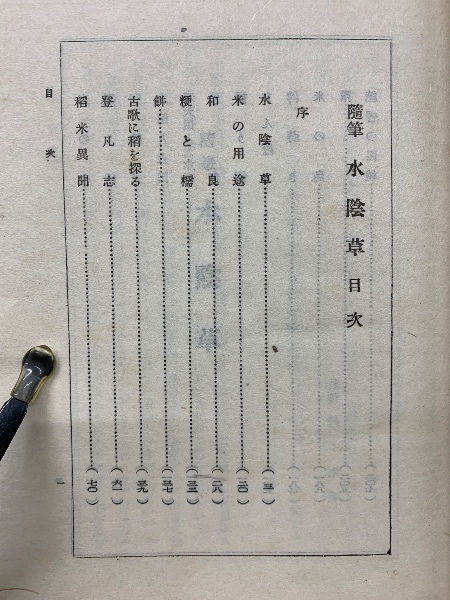 隨筆 水陰草 目次
序
水陰草……(一三)
米の用途……(二〇)
和良……(二八)
粳と糯……(三三)
餅……(三七)
古歌に稻を探る……(五九)
登凡志……(六一)
稻米異聞……(七〇)
目次
一